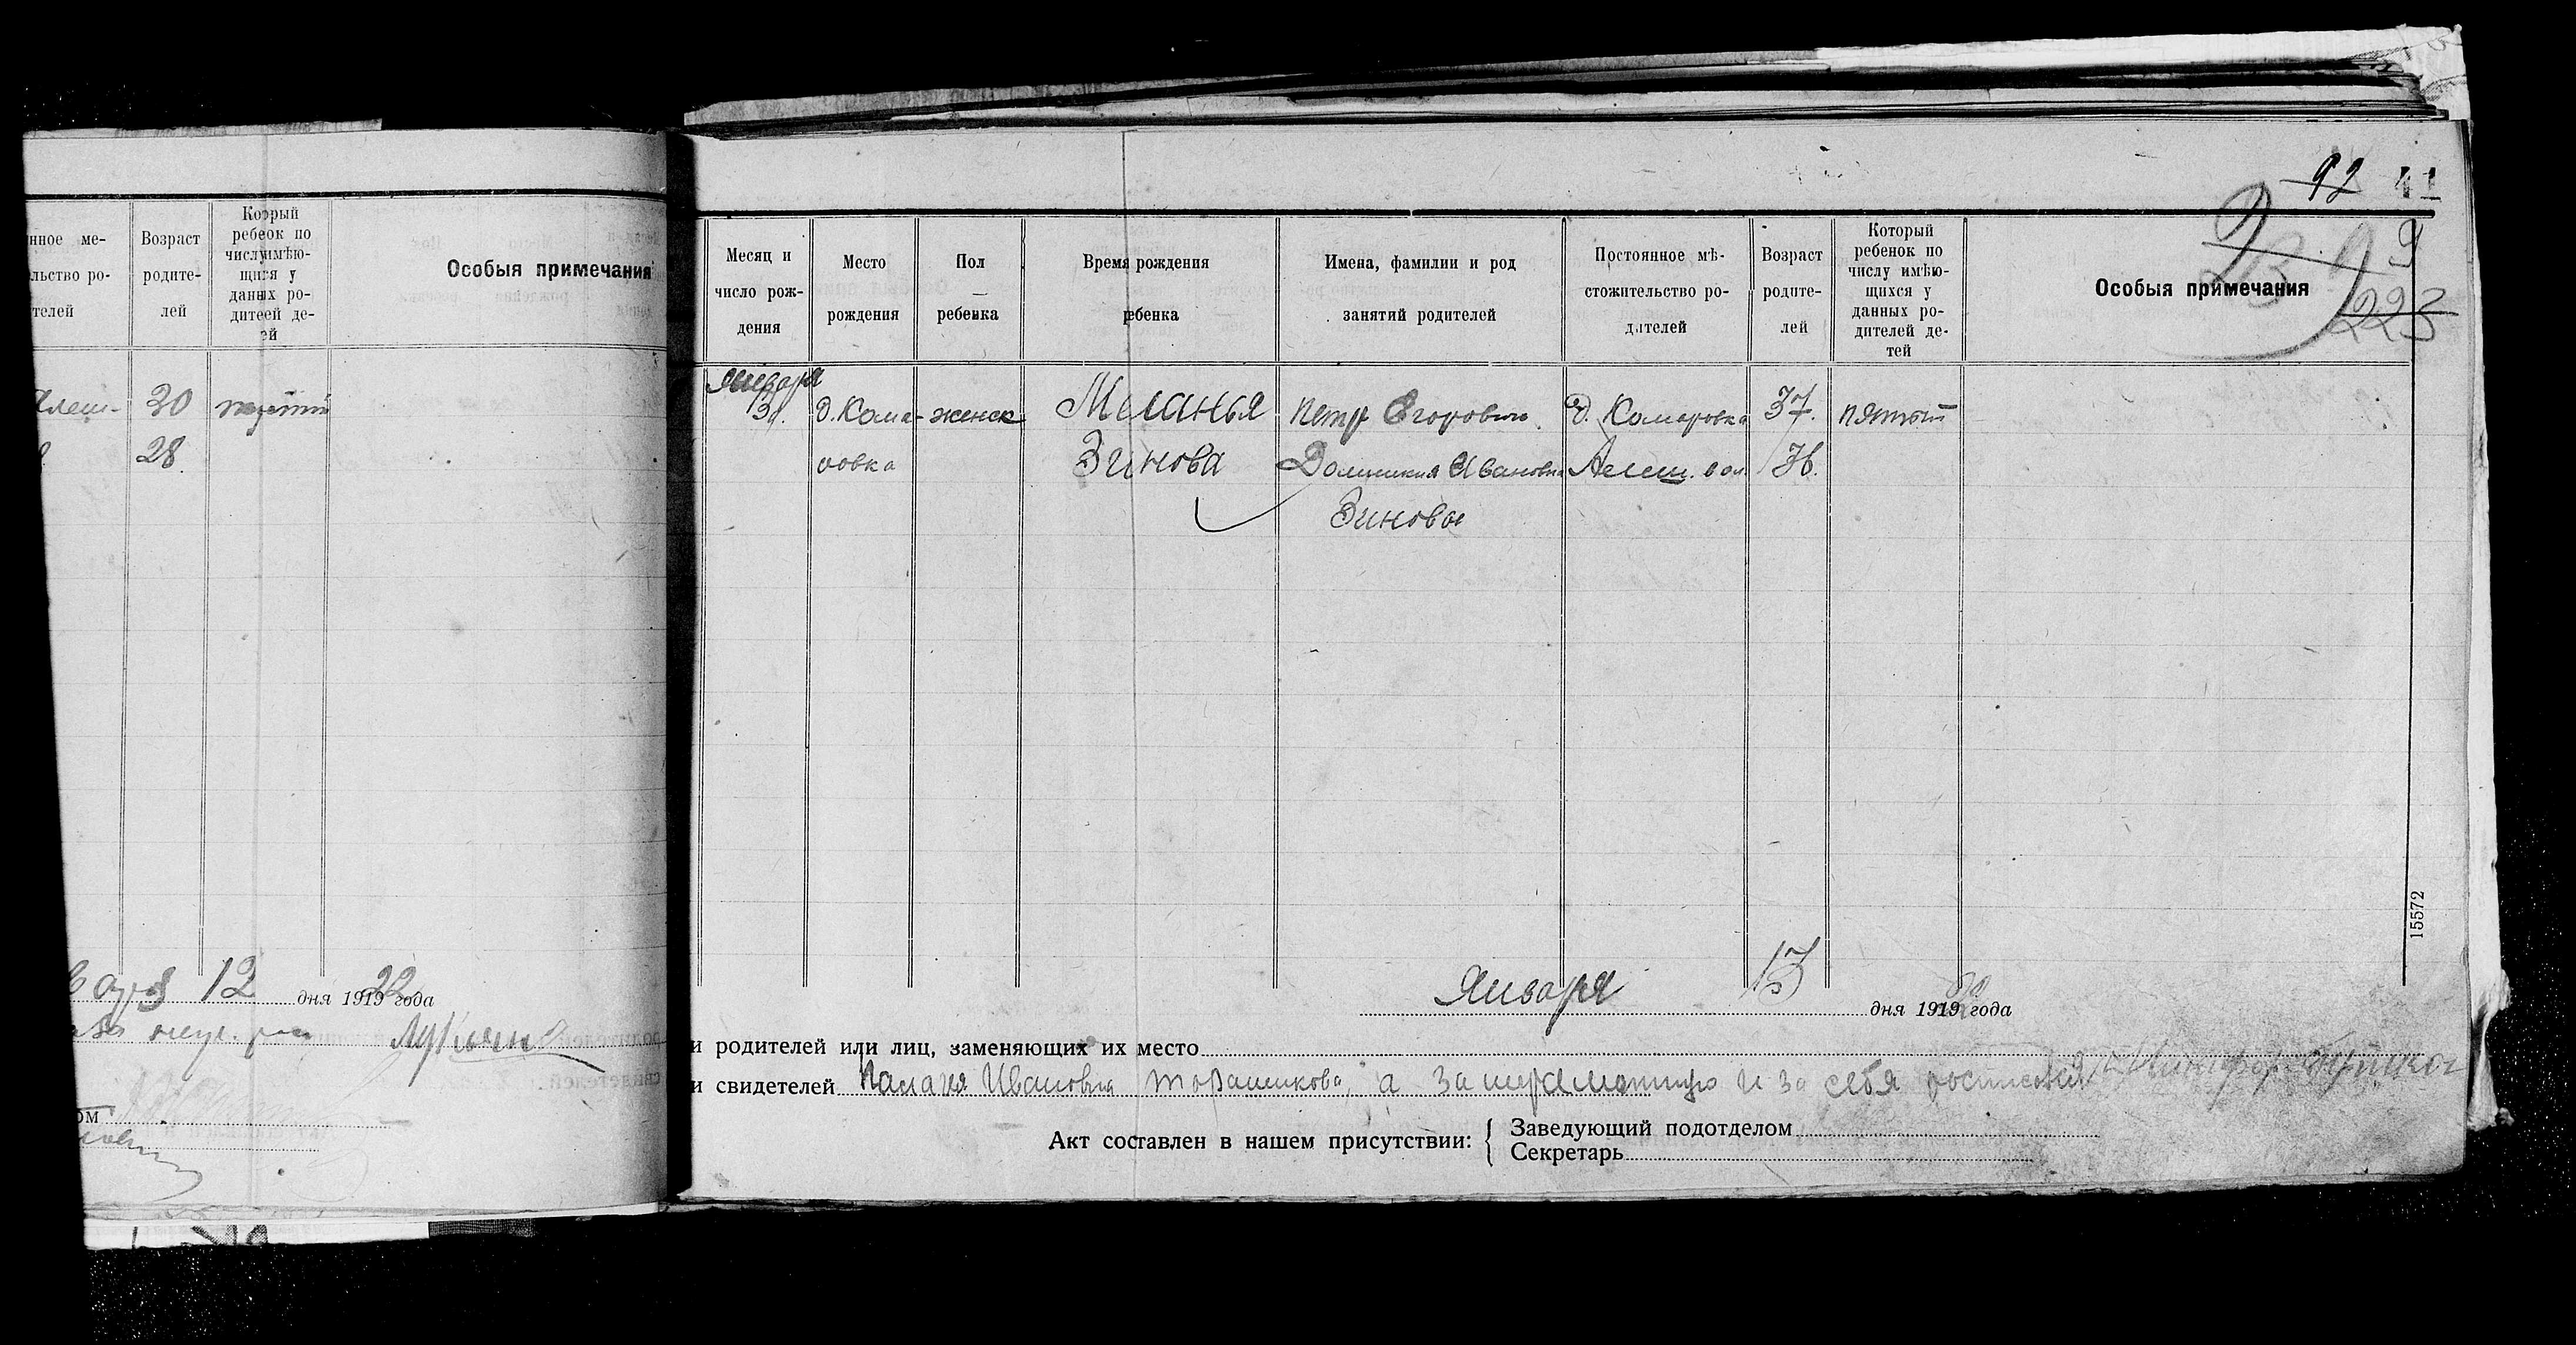 92 41
9
223
нное ме-
льство ро-
телей
Возраст
родите-
лей
Который
ребеок по
числуимѣю-
щихся у
данных ро-
дитеей де-
ей
Особыя примечания
30
28
12 дня 1919 22 года
ом
Месяц и
число рож-
дения
Место
рождения
Пол
ребенка
Время рождения
ребенка
Имена, фамилии и род
занятий родителей
Постоянное мѣ-
стожительство ро-
дителей
Возраст
родите-
лей
Который
ребенок по
числу имѣю-
щихся у
данных ро-
дителей де-
тей
Особыя примечания
Января
д. Кома- женск Меланья Петр Егорович д. Комаровка 37. пятый
ровка Зинова Домникия Ивановна Алеш. вол. 36.
Зиновы
15572
Января 13 дня 1919 года
и родителей или лиц, заменяющих их место
и свидетелей Палагея Ивановна а за неграмотную и за себя
Акт составлен в нашем присутствии: { Заведующий подотделом
Секретарь